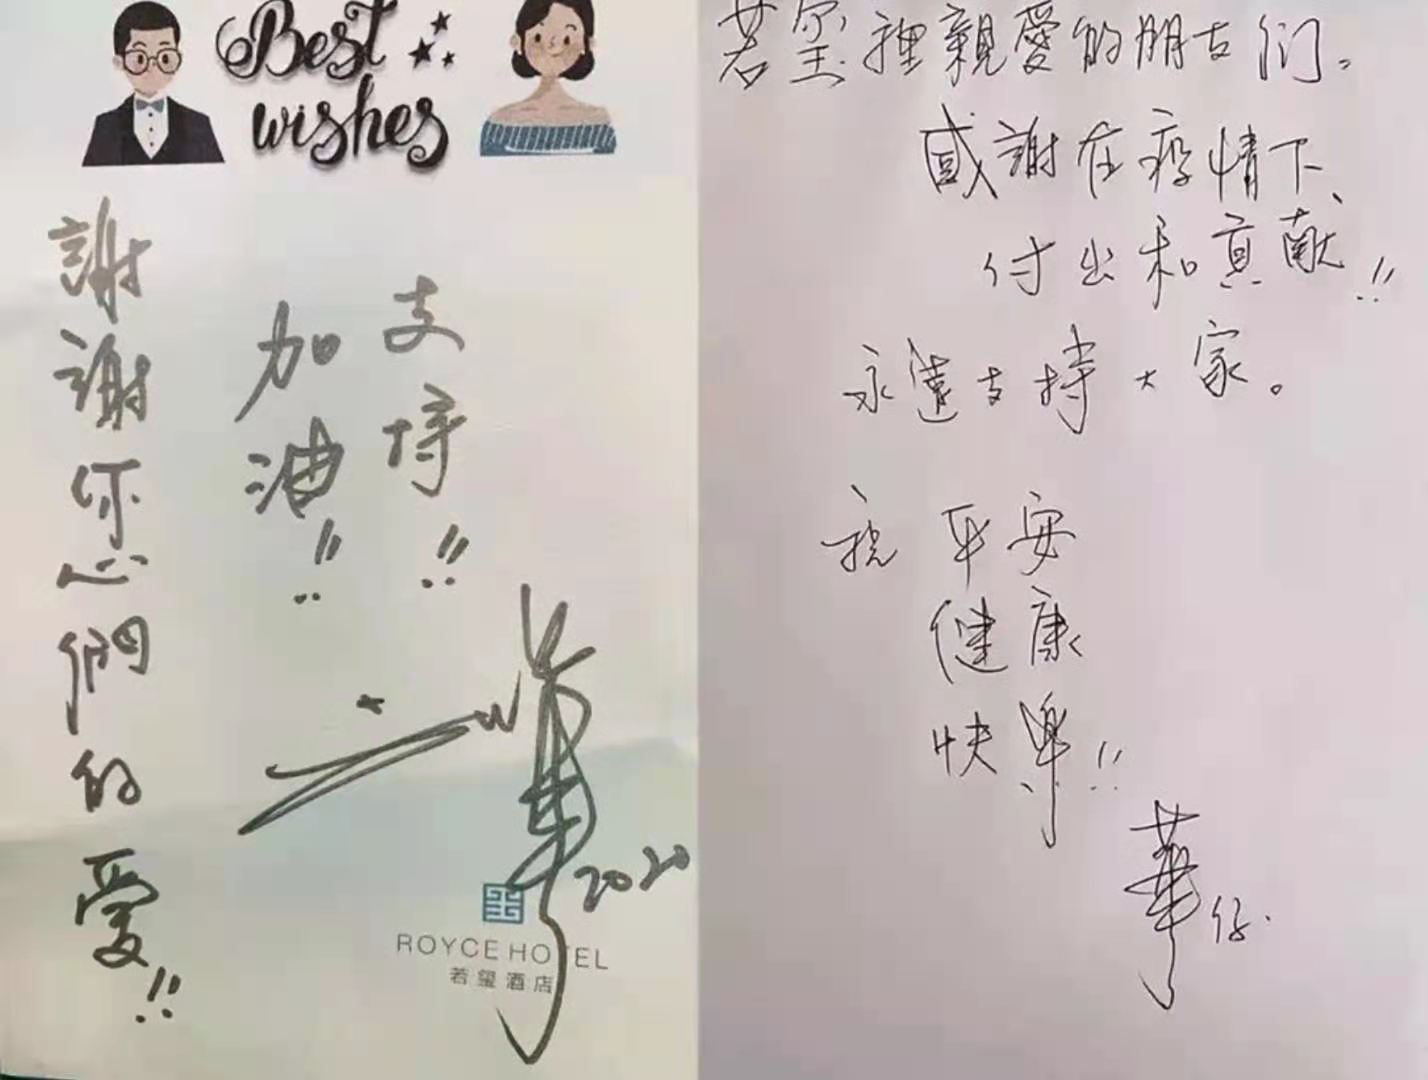 Best
wishes
謝謝您們的愛!!
加油!!
支持!!
華
2020
ROYCE HOTEL
若玺酒店
若玺裡親愛的朋友们。
感謝在疫情下、
付出和貢献!!
永遠支持大家。
祝 平安
健康
快樂!!
華仔.